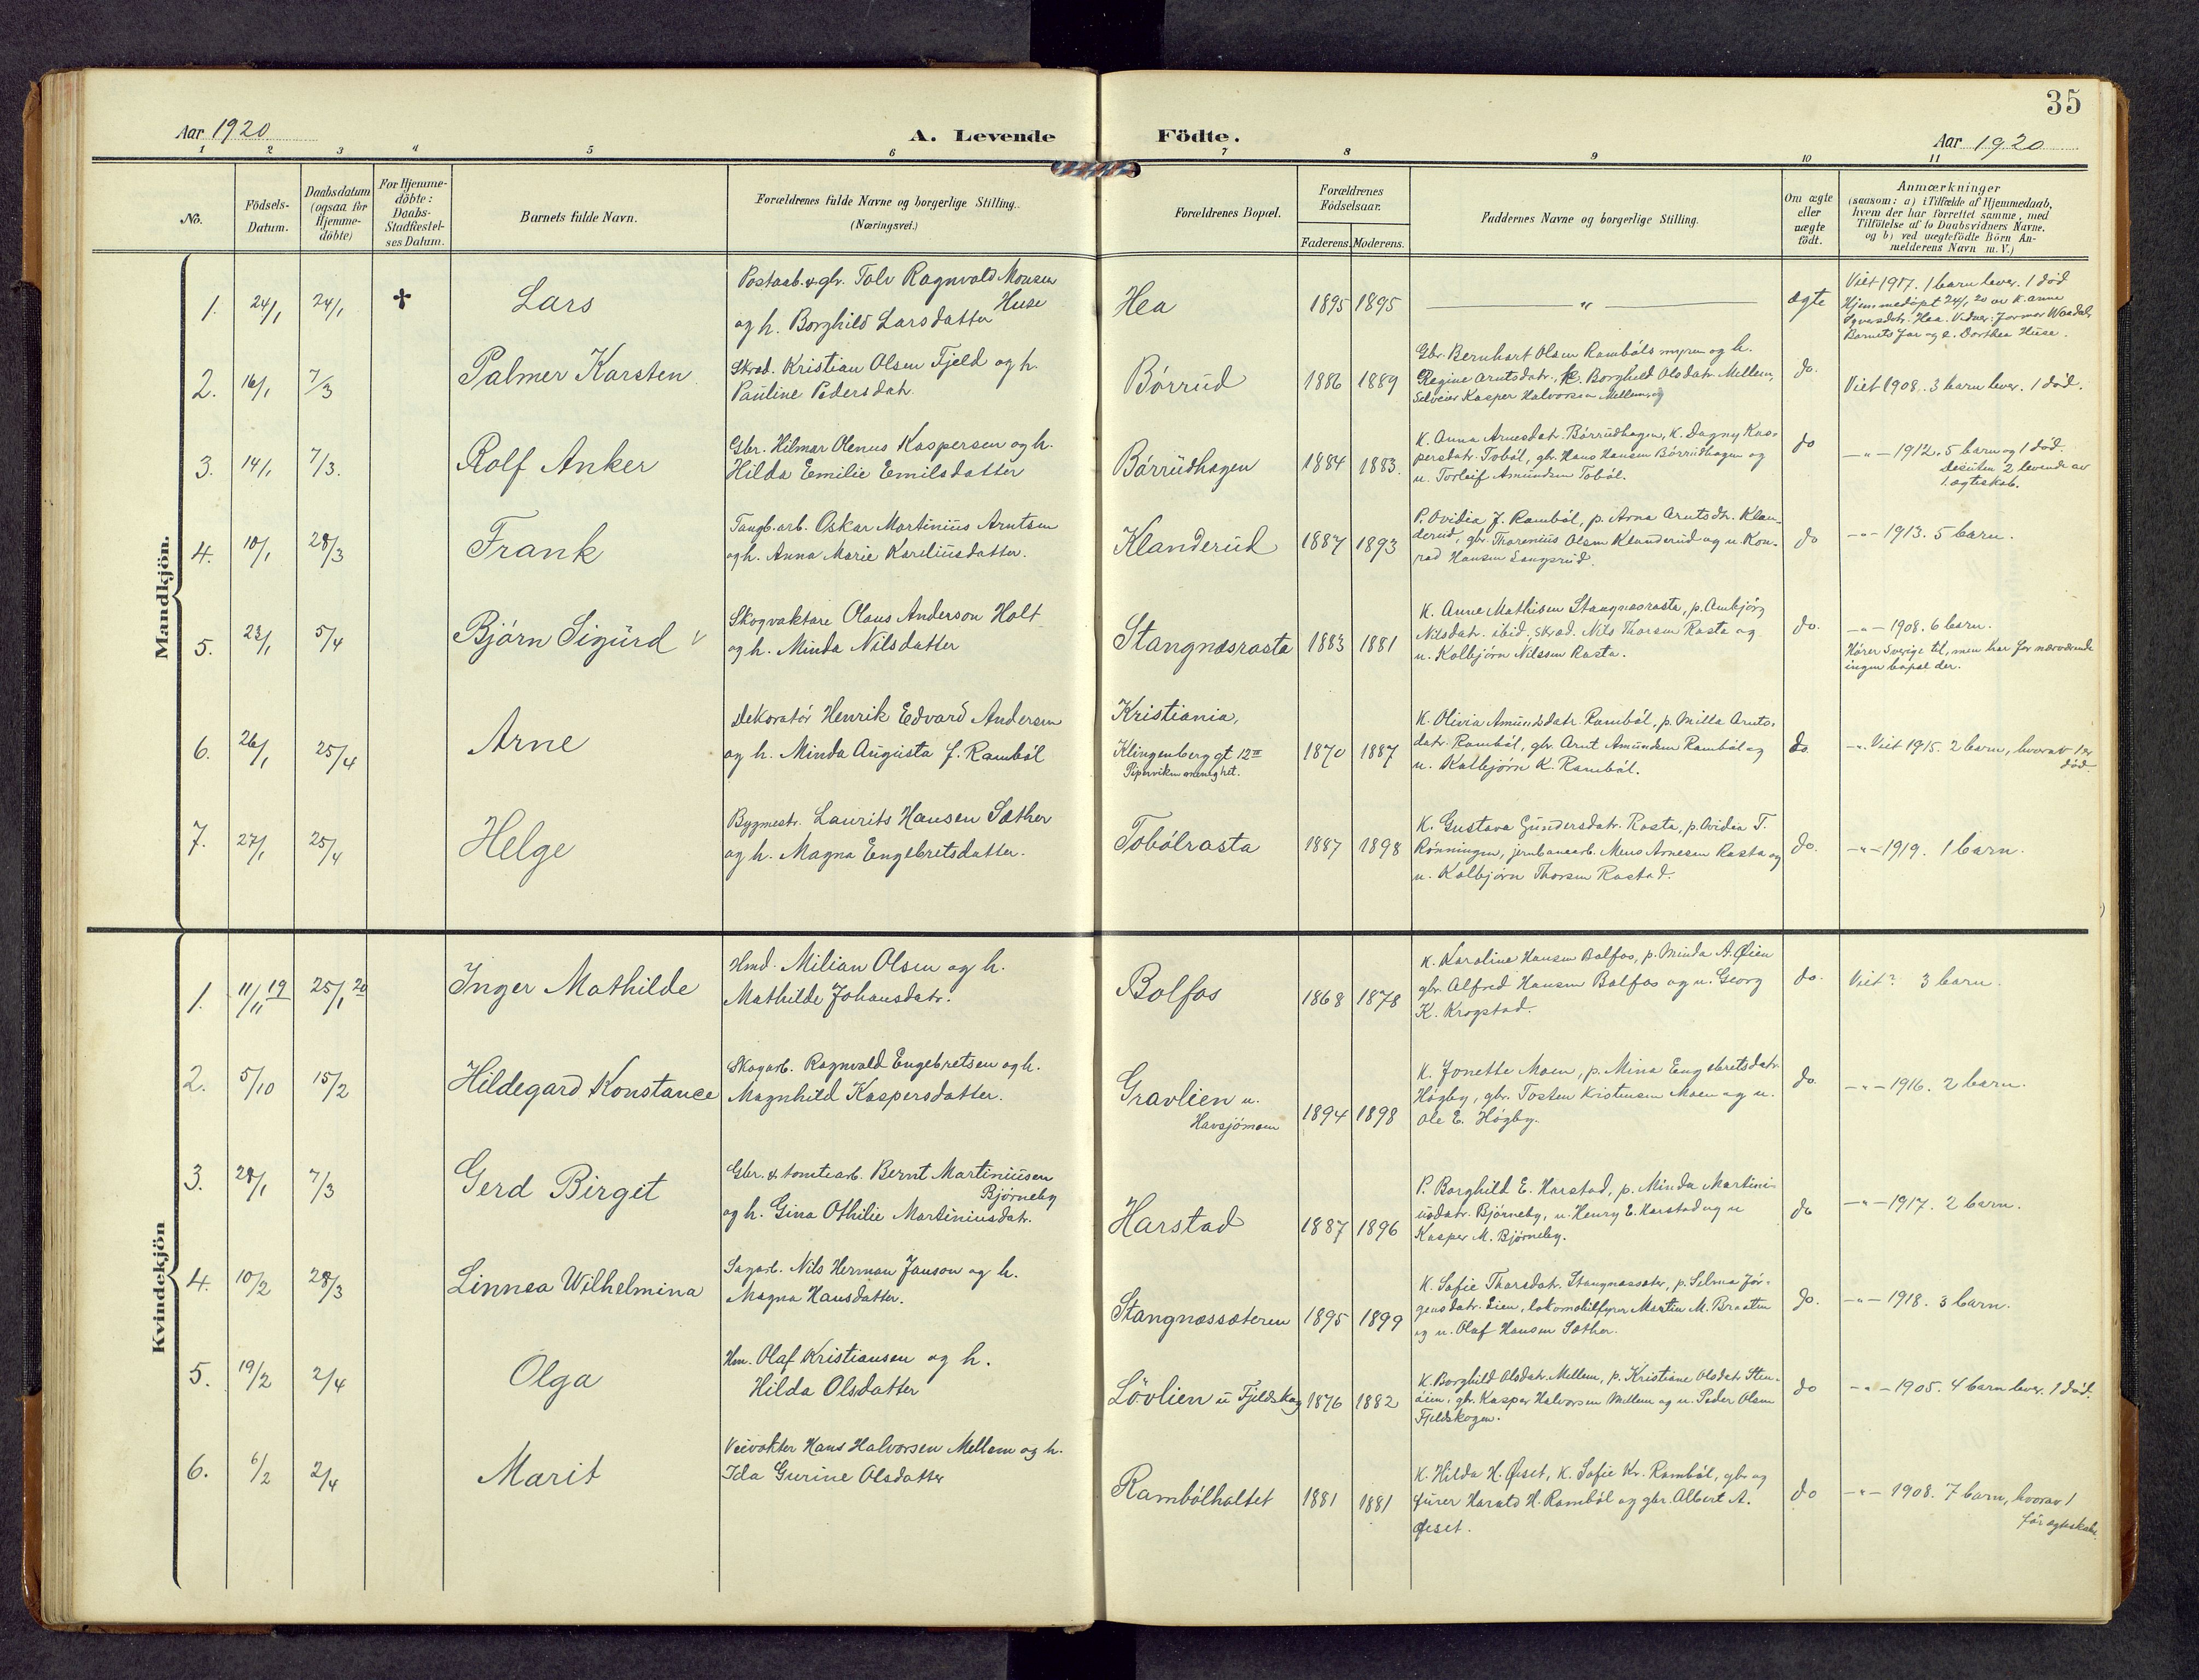 35
Aar 1920
A. Levende
Födte.
Aar 1920
1 2 3 4 5 6 7 8 9 10 11
No.
Födsels-
Datum.
Daabsdatum
(ogsaa for
Hjemme-
döbte)
For Hjemme-
döbte:
Daabs-
Stadfæstel-
ses Datum.
Barnets fulde Navn.
Forældrenes fulde Navne og borgerlige Stilling.
(Næringsvei.)
Forældrenes Bopæl.
Forældrenes
Födselsaar.
Faderens. Moderens.
Faddernes Navne og borgerlige Stilling.
Om ægte
eller
uægte
födt.
Anmærkninger
(saasom: a) i Tilfælde af Hjemmedaab,
hvem der har forrettet samme, med
Tilföielse af to Daabsvidners Navne,
og b) ved uægtefödte Börn An-
melderens Navn m. V.)
Mandkjön.
1. 24/1 24/1 ✝ Lars
Postaab. & gbr. Tolv Ragnvald Monsen
Huse
og h. Borghild Larsdatter
Hea
1895 1895
— " —
ægte
Viet 1917. 1 barn lever. 1 död
Hjemmedöpt 24/1 20 av K. Anne
Barnets far og e. Dorthea Huse.
2. 16/1 7/3 Palmer Karsten
Skræd. Kristian Olsen Fjeld og h.
Pauline Pedersdatr.
Börrud
1886 1889
Gbr. Bernhart Olsen Rambölsmyren og h.
Regine Arntsdatr., K. Borghild Olsdatr. Mellem,
Kasper Halvorsen Mellem, og
do.
Viet 1908. 3 barn lever. 1 död.
3. 14/1 7/3. Rolf Anker
Gbr. Hilmar Olenus Kaspersen og h.
Hilda Emilie Emilsdatter
Börrudhagen
1884 1883.
K. Anna Arnesdatr. Börrudhagen, K. Dagny Kas-
persdatr. Toböl, gbr. Hans Hansen Börrudhagen og
u. Torleif Amundsen Toböl.
do
— " — 1912. 5 barn og 1 död.
Desuten 2 levende av
1. ægteskab.
4. 10/1 28/3 Frank
Tangb. arb. Oskar Martinius Arntsen
og h. Anna Marie Kareliusdatter.
Klanderud
1887 1893
P. Ovidia J. Ramböl, p. Arna Arntsdtr. Klan-
derud, gbr. Thorenius Olsen Klanderud og u. Kon-
rad Hansen Langsrud.
do
— " — 1913. 5 barn.
5. 23/1 5/4 Björn Sigurd v
Skogvaktare Olaus Anderson Holt
og h. Minda Nilsdatter
Stangnæsrasta
1883 1881
K. Anne Mathisen Stangnæsrasta, p. Ambjörg
Nilsdatr. ibid, skræd. Nils Thorsen Rasta og
u. Kolbjörn Nilssen Rasta.
do.
— " — 1908. 6 barn.
Hörer Sverige til, men har for nærværende
ingen bopæl der.
6. 26/1 25/4 Arne
Dekoratör Henrik Edvard Andersen
og h. Minda Augusta f. Ramböl
Kristiania,
Klingenberg gt 12III
Pipervikens menighet.
1870 1887
K. Olivia Amundsdatr. Ramböl, p. Milla Arnts-
datr. Ramböl, gbr. Arnt Amundsen Ramböl og
u. Kolbjörn K. Ramböl.
do.
— " — Viet 1915. 2 barn, hvorav 1 er
död.
7. 27/1 25/4 Helge
Bygmestr. Laurits Hansen Sæther
og h. Magna Engebretsdatter.
Tobölrasta
1887 1898
K. Gustava Gundersdatr. Rasta, p. Ovidia T.
Rönningen, jernbanearb. Mens Arnesen Rasta og
u. Kolbjörn Thorsen Rastad.
do.
— " — 1919. 1 barn.
Kvindekjön
1. 11/11 19 25/1 20 Inger Mathilde
Hmd. Milian Olsen og h.
Mathilde Johansdatr.
Bolfos
1868 1878
K. Karoline Hansen Bolfos, p. Minda A. Øien
gbr. Alfred Hansen Bolfos og u. Georg
K. Krogstad.
do.
Viet? 3 barn.
2. 5/10 15/2 Hildegard Konstance
Skogarb. Ragnvald Engebretsen og h.
Magnhild Kaspersdatter.
Gravlien u.
Havsjömoen
1894 1898
K. Jonette Moen, p. Mina Engebretsdatr.
Högby, gbr. Tosten Kristensen Moen og u.
Ole E. Högby.
do.
— " — 1916. 2 barn.
3. 28/1 7/3 Gerd Birgit
Gbr. & tomtearb. Bernt Martiniusen
Bjørneby
og h. Gina Othilie Martiniusdatr.
Harstad
1887 1896
P. Borghild E. Harstad, p. Minda Martini-
usdatr. Bjørneby, u. Henry E. Harstad og u
Kasper M. Bjørneby.
do
— " — 1917. 2 barn.
4. 10/2 28/3 Linnea Wilhelmina
Sagarb. Nils Herman Janson og h.
Magna Hansdatter.
Stangnæssæteren
1895 1899
K. Sofie Thorsdatr. Stangnæssæter, p. Selma Jör-
gensdatr. Lien, lokomobilfyrer Martin M. Braaten
og u. Olaf Hansen Sæther.
do.
— " — 1918. 3 barn.
5. 19/2 2/4 Olga
Hm. Olaf Kristiansen og h.
Hilda Olsdatter
Lövlien u Fjeldskog
1876 1882
K. Borghild Olsdatr. Mellem, p. Kristiane Olsdatr. Sten-
öien, gbr. Kasper Halvorsen Mellem og u. Peder Olsen
Fjeldskogen.
do
— " — 1905. 4 barn lever. 1 död.
6. 6/2 2/4 Marit
Veivokter Hans Halvorsen Mellem og h.
Ida Gurine Olsdatter
Rambölholtet
1881 1881
K. Hilda H. Øiset, K. Sofie Kr. Ramböl, gbr og
furer Harald H. Ramböl og gbr. Albert A.
Øiset.
do
— " — 1908. 7 barn, hvorav 1
för ægteskabet.